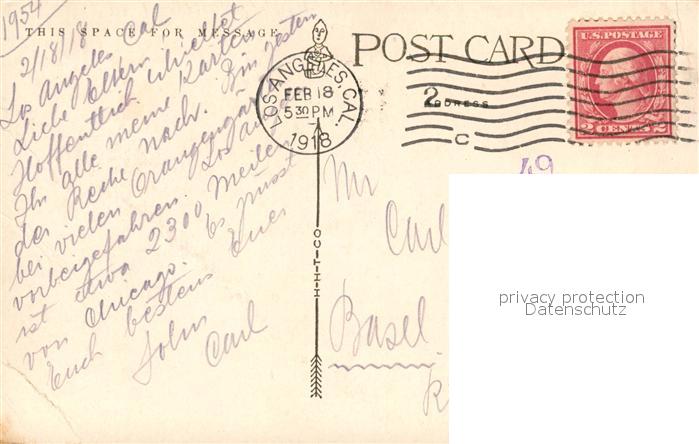 1954
THIS SPACE FOR MESSAGE
POST CARD
ADDRESS
U.S. POSTAGE
2 CENTS 2
LOS ANGELES CAL.
FEB 18
530 PM
1918
2
C
49
H-H-T-CO
2/18/18
Los Angeles Cal
Liebe Eltern
Hoffentlich erhieltet
Ihr alle meine Karten
der Reihe nach. Bin gestern
bei vielen Orangengärten
vorbeigefahren. Los Angeles
ist etwa 2300 Meilen
von Chicago. Es grüsst
Euch bestens Euer
Sohn
Carl
Mr
Carl
Basel
privacy protection
Datenschutz